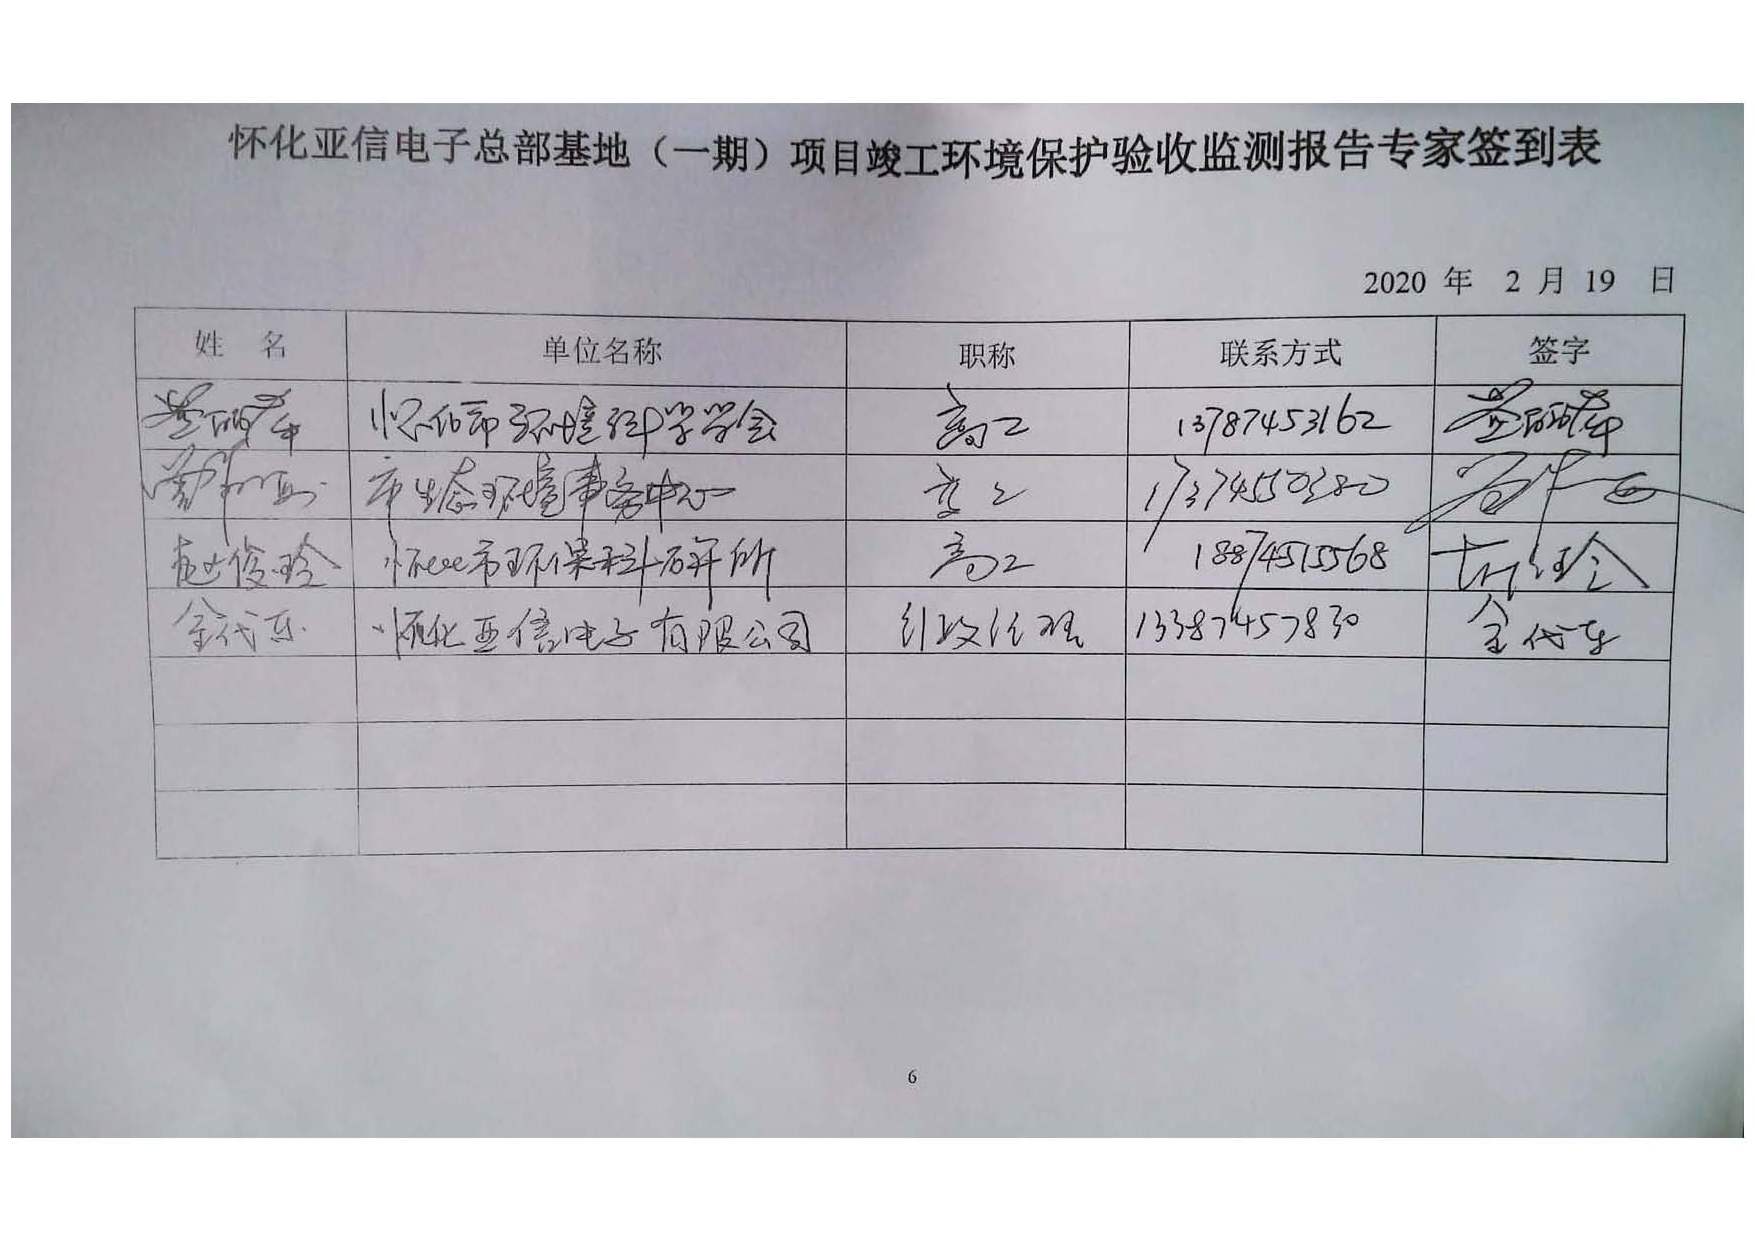 怀化亚信电子总部基地（一期）项目竣工环境保护验收监测报告专家签到表
2020 年 2 月 19 日
姓 名 单位名称 职称 联系方式 签字
怀化市环境科学学会 高工 13787453162
市生态环境事务中心 高工 17374550380
赵俊玲 怀化市环保科研所 高工 18874515568
金代东 怀化亚信电子有限公司 行政经理 13387457830 金代东
6